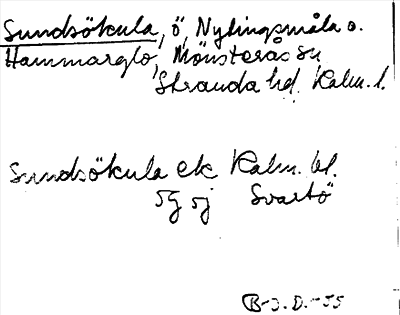 Sundsökula, ö, Nylingsmåla o.
Hammarglo, Mönsterås sn
Stranda hd. Kalm. l.
Sundsökula ek Kalm. bl.
5G 5j Svartö
B-3. D.-55